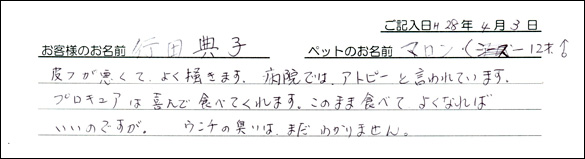 ご記入日H28年4月3日
お客様のお名前 行田典子 ペットのお名前 マロン(シーズー12才♂
皮フが悪くて、よく掻きます。病院では、アトピーと言われています。
プロキュアは喜んで食べてくれます。このまま食べてよくなれば
いいのですが。 ウンチの臭いは、まだわかりません。